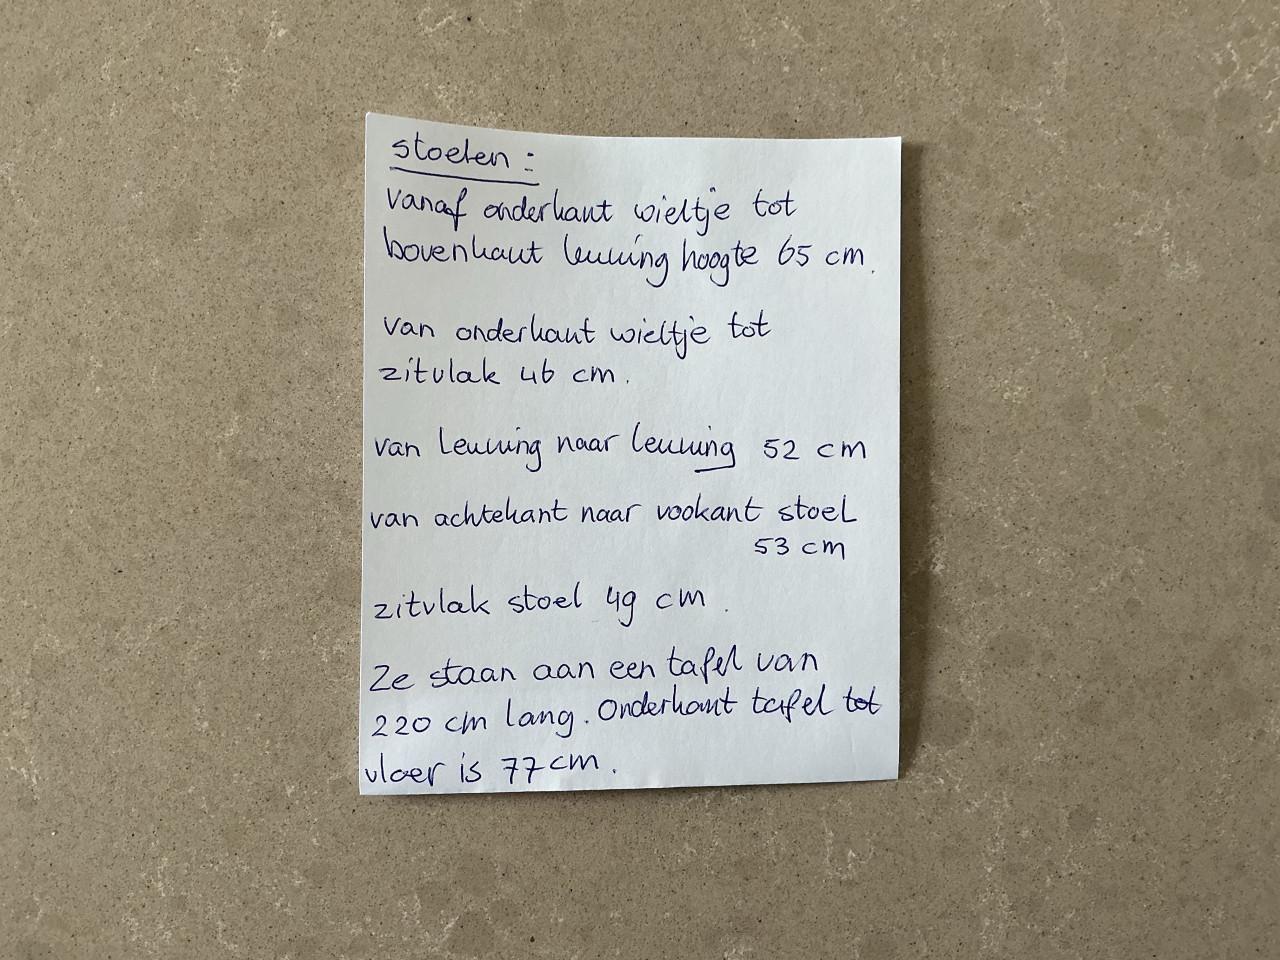 stoelen :
vanaf onderkant wieltje tot
bovenkant leuning hoogte 65 cm.
van onderkant wieltje tot
zitvlak 46 cm.
van leuning naar leuning 52 cm
van achtekant naar vookant stoel
53 cm
zitvlak stoel 49 cm.
Ze staan aan een tafel van
220 cm lang. Onderkant tafel tot
vloer is 77 cm.